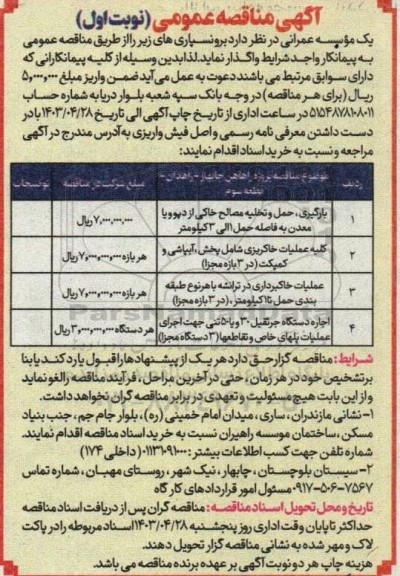 آگهی مناقصه عمومی (نوبت اول)
یک مؤسسه عمرانی در نظر دارد برونسپاری های زیر را از طریق مناقصه عمومی
به پیمانکار واجد شرایط واگذار نماید. لذا بدین وسیله از کلیه پیمانکارانی که
دارای سوابق مرتبط می باشند دعوت به عمل می آید ضمن واریز مبلغ ۵,۰۰۰,۰۰۰
ریال (برای هر مناقصه) در وجه بانک سپه شعبه بلوار دریا به شماره حساب
۵۱۵۴۸۷۸۱۰۸۰۱۱ در ساعت اداری از تاریخ چاپ آگهی الی تاریخ ۱۴۰۳/۰۴/۲۸ با در
دست داشتن معرفی نامه رسمی و اصل فیش واریزی به آدرس مندرج در آگهی
مراجعه و نسبت به خرید اسناد اقدام نمایند:
ردیف موضوع مناقصه پروژه راه‌آهن چابهار - زاهدان - قطعه سوم مبلغ شرکت در مناقصه توضیحات
۱ بارگیری، حمل و تخلیه مصالح خاکی از دپو و یا معدن به فاصله حمل ۱ الی ۳ کیلومتر ۷,۰۰۰,۰۰۰,۰۰۰ ریال
۲ کلیه عملیات خاکریزی شامل پخش، آبپاشی و کمپکت (در ۲ بازه مجزا) هر بازه ۷,۰۰۰,۰۰۰,۰۰۰ ریال
۳ عملیات خاکبرداری در ترانشه با هر نوع طبقه بندی حمل تا ۱ کیلومتر، (در ۳ بازه مجزا) هر بازه ۷,۰۰۰,۰۰۰,۰۰۰ ریال
۴ اجاره دستگاه جرثقیل ۳۰ و یا ۵۰ تنی جهت اجرای عملیات پلهای خاص و تقاطعها (۳ دستگاه مجزا) هر دستگاه ۳,۰۰۰,۰۰۰,۰۰۰ ریال
ParsNamadData
شرایط: مناقصه گزار حق دارد هر یک از پیشنهادها را قبول یا رد کند یا بنا
بر تشخیص خود در هر زمان، حتی در آخرین مراحل، فرآیند مناقصه را لغو نماید
و از این بابت هیچ مسئولیت و تعهدی در برابر مناقصه گران نخواهد داشت.
۱- نشانی مازندران، ساری، میدان امام خمینی (ره)، بلوار جام جم، جنب بنیاد
مسکن، ساختمان موسسه راهیران نسبت به خرید اسناد مناقصه اقدام نمایند.
شماره تلفن جهت کسب اطلاعات بیشتر: ۰۱۱۳۱۰۹۱۰۰۰ (داخلی ۱۷۴)
۲- سیستان بلوچستان، چابهار، نیک شهر، روستای مهبان، شماره تماس
۰۹۱۷-۵۰۶-۷۵۶۷ مسئول امور قراردادهای کارگاه
تاریخ و محل تحویل اسناد مناقصه: مناقصه گران پس از دریافت اسناد مناقصه
حداکثر تا پایان وقت اداری روز پنجشنبه ۱۴۰۳/۰۴/۲۸ اسناد مربوطه را در پاکت
لاک و مهر شده به نشانی مناقصه گزار تحویل دهند.
هزینه چاپ هر دو نوبت آگهی بر عهده برنده مناقصه می باشد.